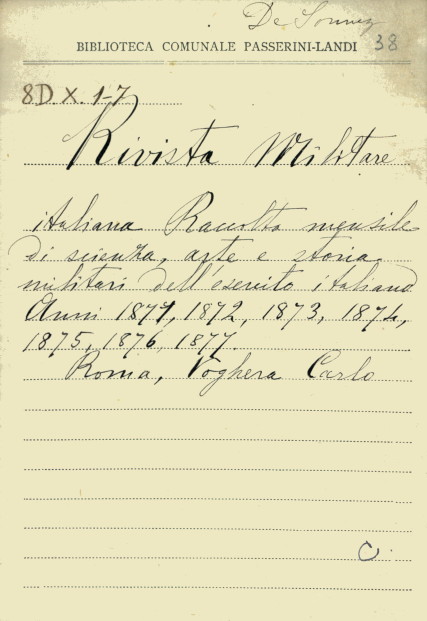 De
BIBLIOTECA COMUNALE PASSERINI-LANDI 38
8D. X. 1-7
Rivista Militare
italiana Raccolta mensile
di scienza, arte e storia
militari dell'esercito italiano
Anni 1871, 1872, 1873, 1874,
1875, 1876, 1877.
Roma, Voghera Carlo
C.